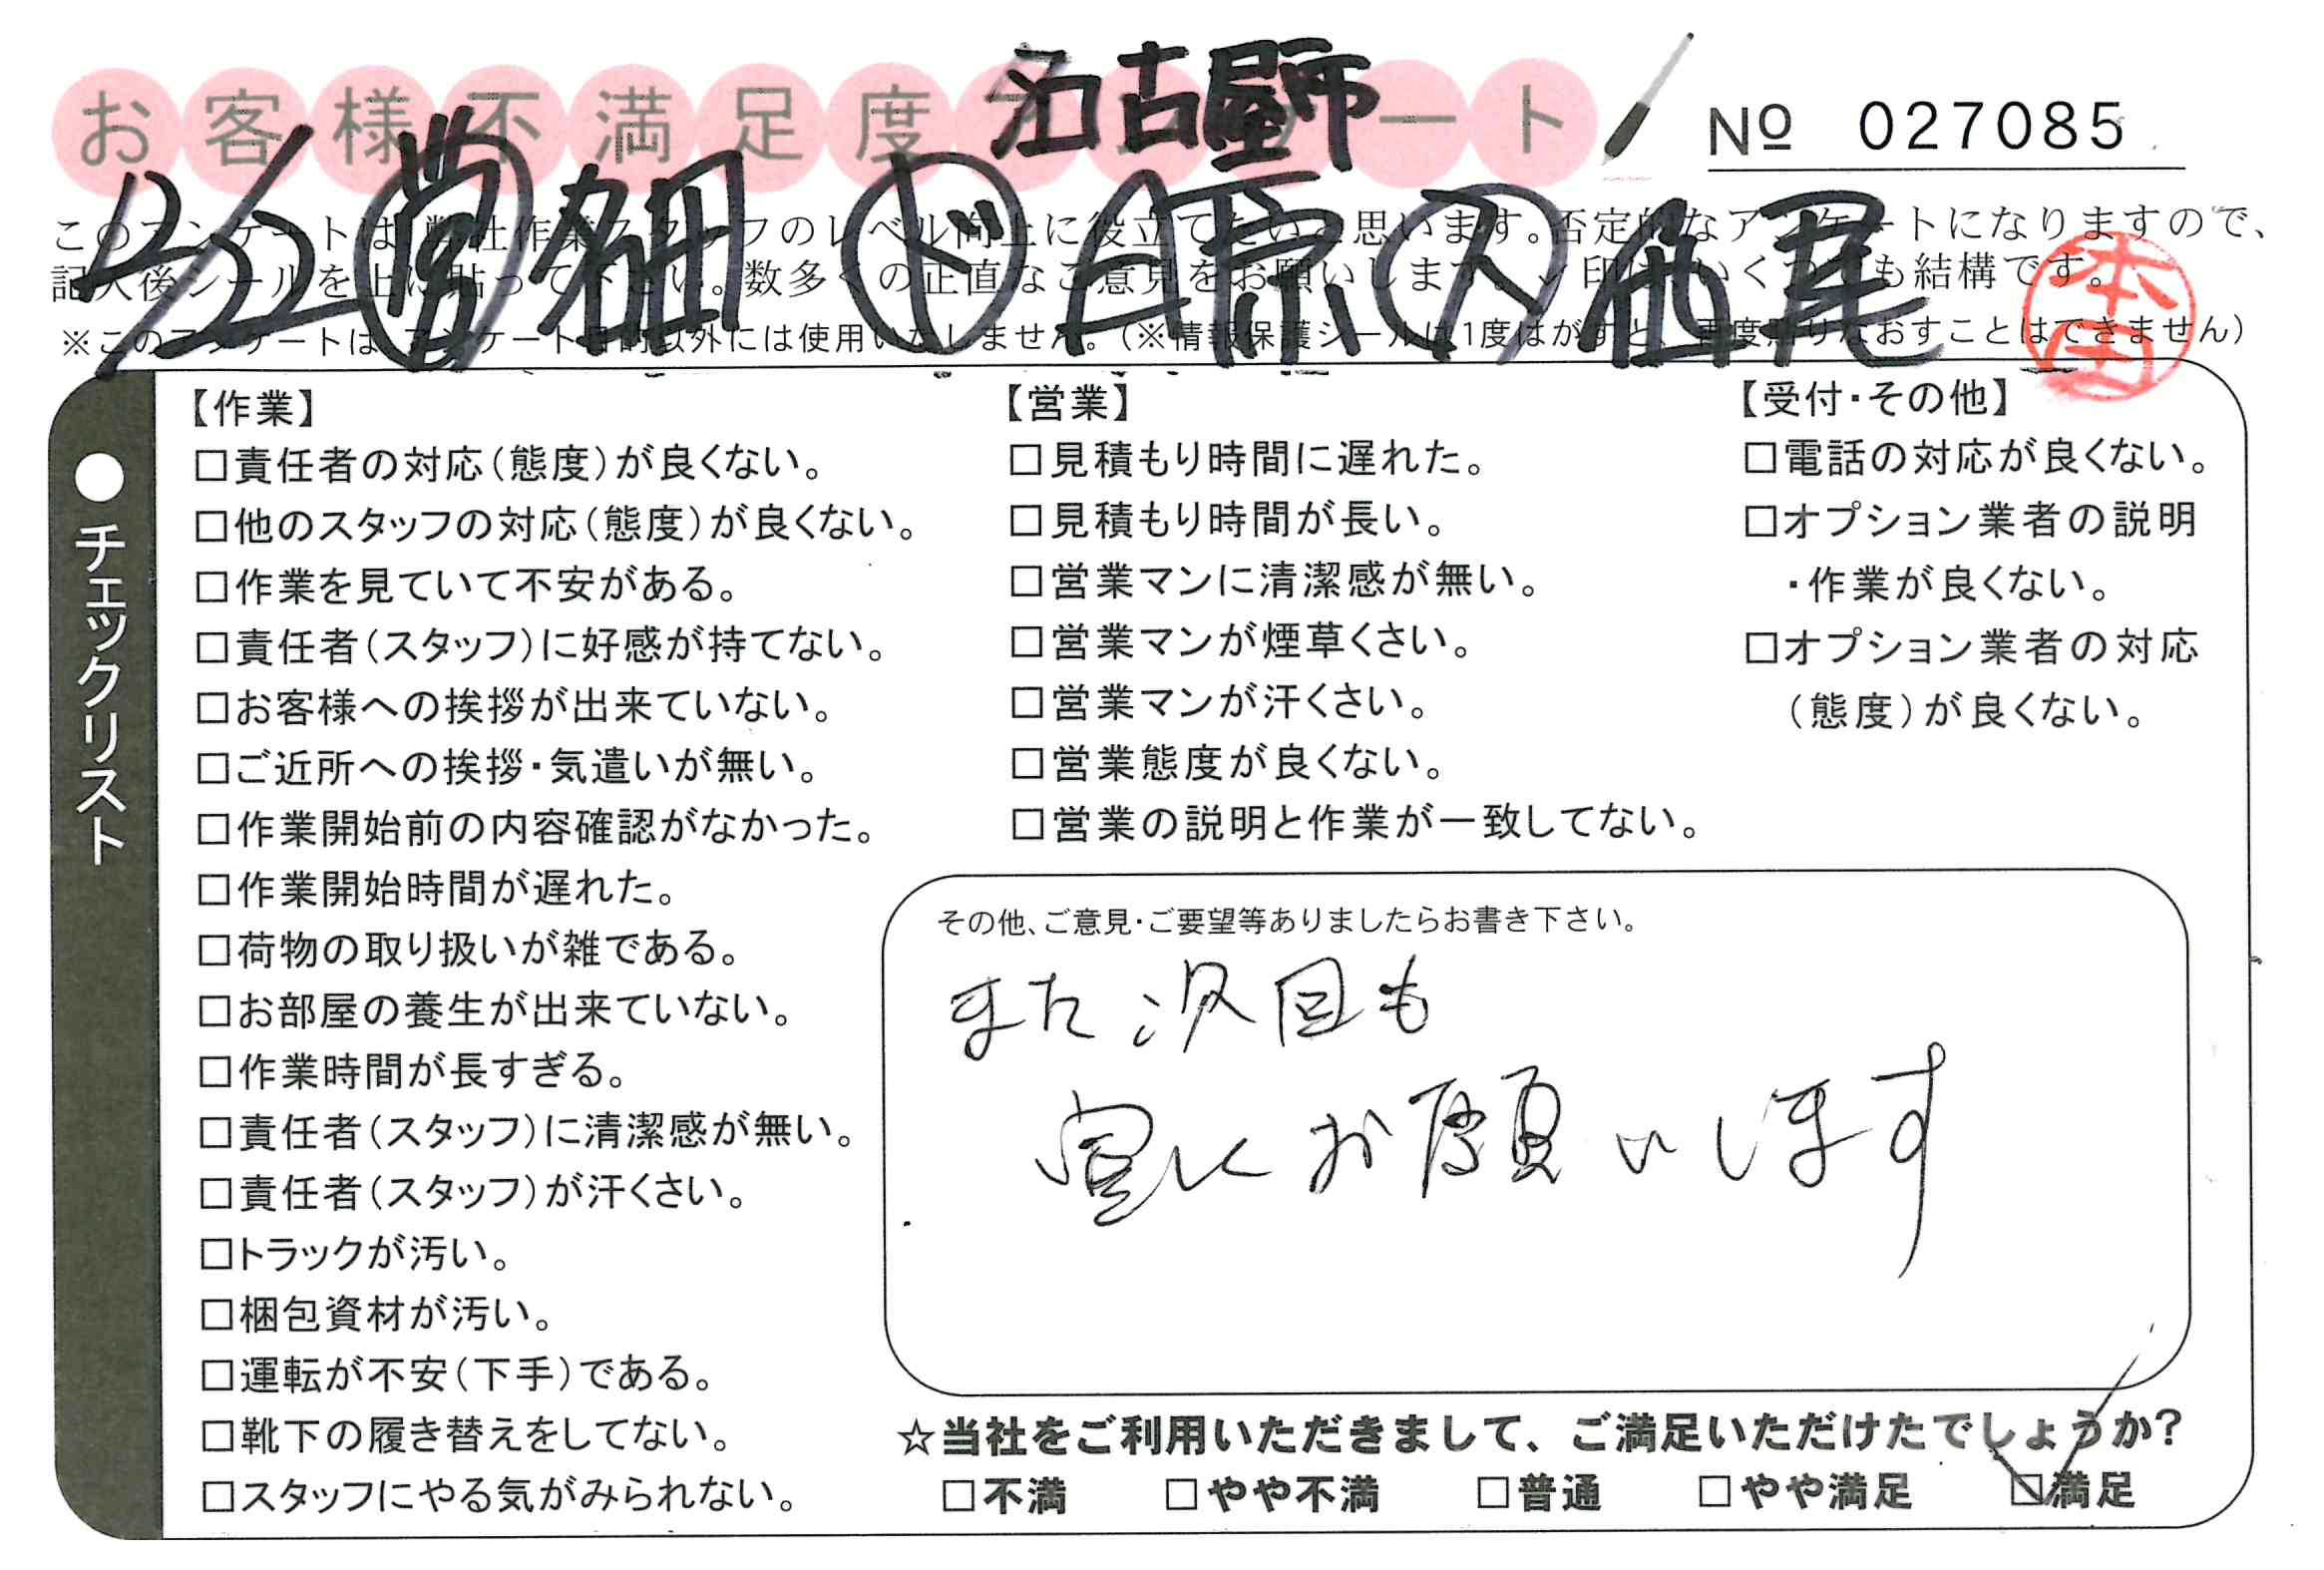 お客様不満足度アンケート
名古屋市
№ 027085
2/22 営 畑 ド 萩原 ス 西尾
このアンケートは、弊社作業スタッフのレベル向上に役立てたいと思います。否定的なアンケートになりますので、
記入後シールを上に貼って下さい。数多くの正直なご意見をお願いします。✓印は、いくつでも結構です。
※このアンケートは、アンケート目的以外には使用いたしません。(※情報保護シールは1度はがすと、再度貼りなおすことはできません)
本田
●チェックリスト
【作業】
□責任者の対応(態度)が良くない。
□他のスタッフの対応(態度)が良くない。
□作業を見ていて不安がある。
□責任者(スタッフ)に好感が持てない。
□お客様への挨拶が出来ていない。
□ご近所への挨拶・気遣いが無い。
□作業開始前の内容確認がなかった。
□作業開始時間が遅れた。
□荷物の取り扱いが雑である。
□お部屋の養生が出来ていない。
□作業時間が長すぎる。
□責任者(スタッフ)に清潔感が無い。
□責任者(スタッフ)が汗くさい。
□トラックが汚い。
□梱包資材が汚い。
□運転が不安(下手)である。
□靴下の履き替えをしてない。
□スタッフにやる気がみられない。
【営業】
□見積もり時間に遅れた。
□見積もり時間が長い。
□営業マンに清潔感が無い。
□営業マンが煙草くさい。
□営業マンが汗くさい。
□営業態度が良くない。
□営業の説明と作業が一致してない。
【受付・その他】
□電話の対応が良くない。
□オプション業者の説明
・作業が良くない。
□オプション業者の対応
(態度)が良くない。
その他、ご意見・ご要望等ありましたらお書き下さい。
また次回も
宜しくお願いします
☆当社をご利用いただきまして、ご満足いただけたでしょうか?
□不満 □やや不満 □普通 □やや満足 ☑満足